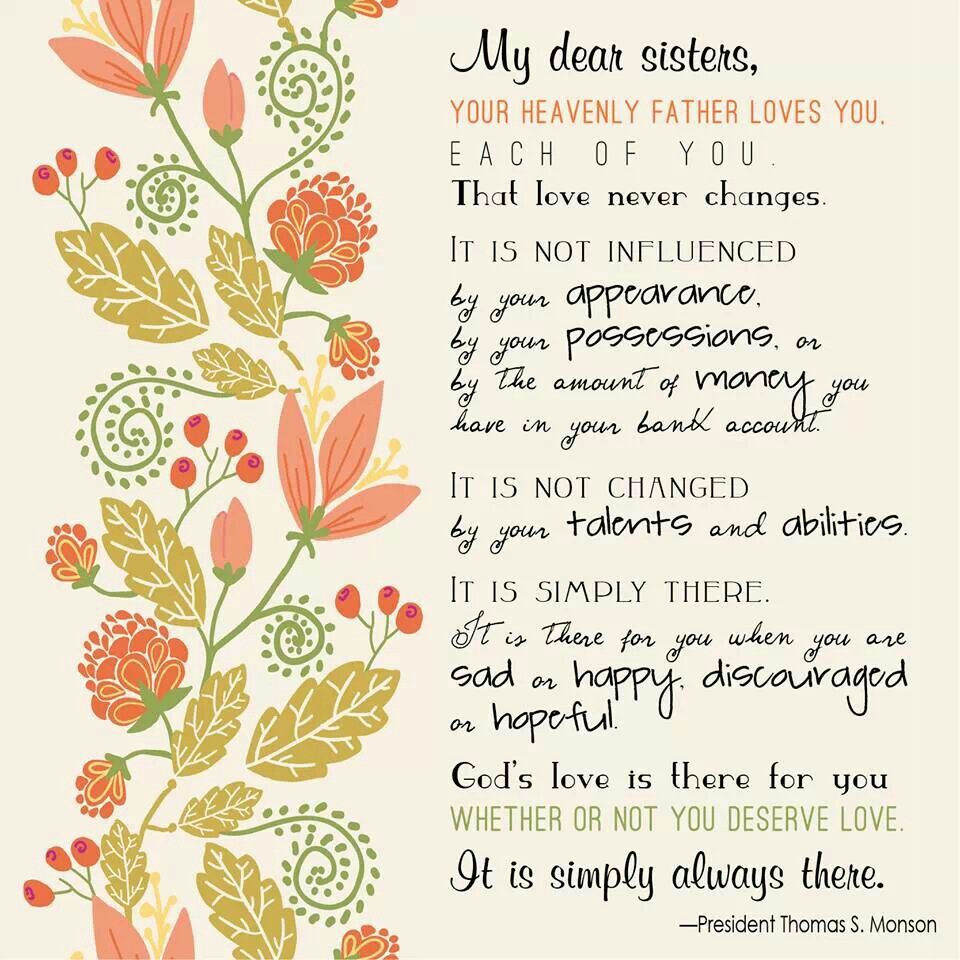 My dear sisters,
YOUR HEAVENLY FATHER LOVES YOU,
EACH OF YOU.
That love never changes.
IT IS NOT INFLUENCED
by your appearance,
by your possessions, or
by the amount of money you
have in your bank account.
IT IS NOT CHANGED
by your talents and abilities.
IT IS SIMPLY THERE.
It is there for you when you are
sad or happy, discouraged
or hopeful.
God's love is there for you
WHETHER OR NOT YOU DESERVE LOVE.
It is simply always there.
—President Thomas S. Monson